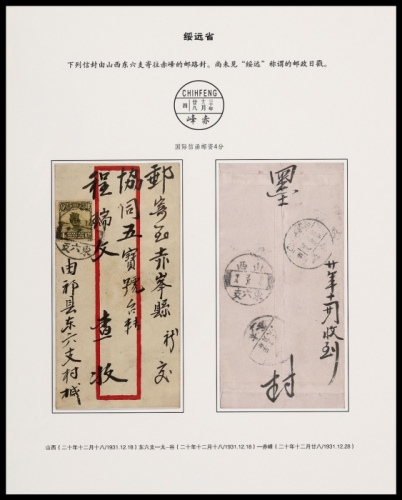 绥远省
下列信封由山西东六支寄往赤峰的邮路封。尚未见“绥远”称谓的邮政日戳。
CHIHFENG
四 廿八 十二月 二十年
赤峰
国际信函邮资4分
郵寄至赤峯縣 交
協同五寶號台柱
程瑞文 查收
由祁县东六支村城
東六支
墨
山西
東六支
廿年十二月 收到
封
山西（二十年十二月十八/1931.12.18）东六支—太—祁（二十年十二月十八/1931.12.18）—赤峰（二十年十二月廿八/1931.12.28）